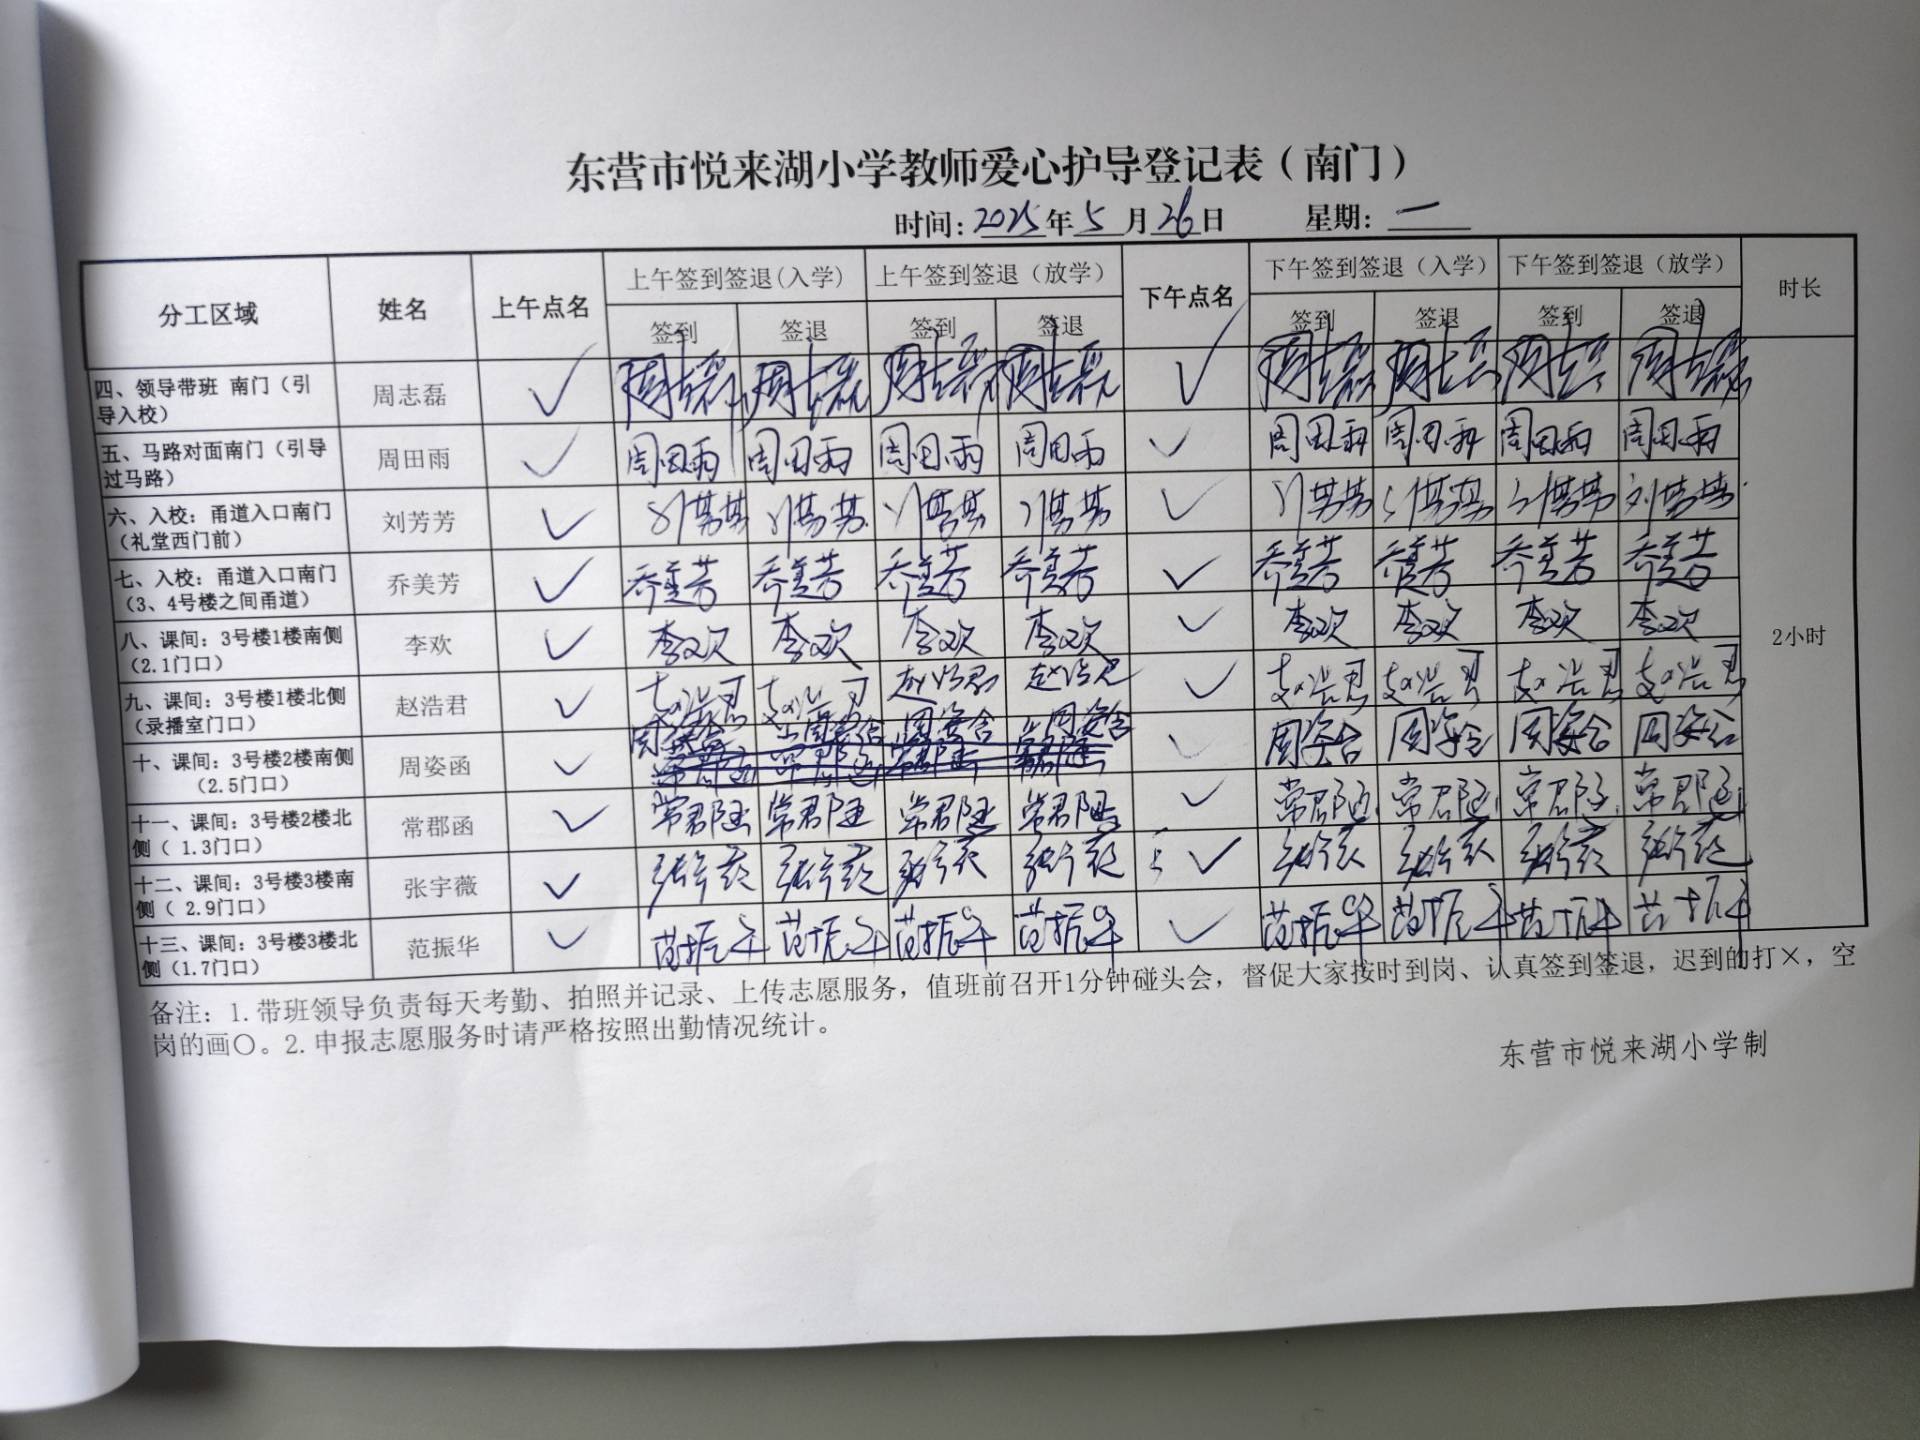 东营市悦来湖小学教师爱心护导登记表（南门）
时间：2025年5月26日 星期：一
分工区域 姓名 上午点名 上午签到签退(入学) 上午签到签退（放学） 下午点名 下午签到签退（入学） 下午签到签退（放学） 时长
签到 签退 签到 签退 签到 签退 签到 签退
四、领导带班 南门（引
导入校） 周志磊 ✓ 周志磊 周志磊 周志磊 周志磊 ✓ 周志磊 周志磊 周志磊 周志磊
五、马路对面南门（引导
过马路） 周田雨 ✓ 周田雨 周田雨 周田雨 周田雨 ✓ 周田雨 周田雨 周田雨 周田雨
六、入校：甬道入口南门
（礼堂西门前） 刘芳芳 ✓ 刘芳芳 刘芳芳 刘芳芳 刘芳芳 ✓ 刘芳芳 刘芳芳 刘芳芳 刘芳芳
七、入校：甬道入口南门
（3、4号楼之间甬道） 乔美芳 ✓ 乔美芳 乔美芳 乔美芳 乔美芳 ✓ 乔美芳 乔美芳 乔美芳 乔美芳
八、课间：3号楼1楼南侧
（2.1门口） 李欢 ✓ 李欢 李欢 李欢 李欢 ✓ 李欢 李欢 李欢 李欢 2小时
九、课间：3号楼1楼北侧
（录播室门口） 赵浩君 ✓ 赵浩君 赵浩君 赵浩君 赵浩君 ✓ 赵浩君 赵浩君 赵浩君 赵浩君
十、课间：3号楼2楼南侧
（2.5门口） 周姿函 ✓ 周姿含 周姿含 周姿含 周姿含 ✓ 周姿含 周姿含 周姿含 周姿含
十一、课间：3号楼2楼北
侧（ 1.3门口） 常郡函 ✓ 常郡函 常郡函 常郡函 常郡函 ✓ 常郡函 常郡函 常郡函 常郡函
十二、课间：3号楼3楼南
侧（ 2.9门口） 张宇薇 ✓ 张宇薇 张宇薇 张宇薇 张宇薇 ✓ 张宇薇 张宇薇 张宇薇 张宇薇
十三、课间：3号楼3楼北
侧(1.7门口） 范振华 ✓ 范振华 范振华 范振华 范振华 ✓ 范振华 范振华 范振华 范振华
备注：1.带班领导负责每天考勤、拍照并记录、上传志愿服务，值班前召开1分钟碰头会，督促大家按时到岗、认真签到签退，迟到的打×，空
岗的画〇。2.申报志愿服务时请严格按照出勤情况统计。
东营市悦来湖小学制